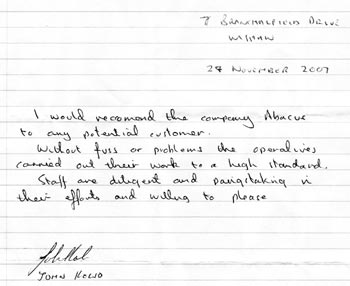 DRIVE
WISHAW
28 NOVEMBER 2007
I would recomend the company Abacus
to any potential customer.
Without fuss or problems the operatives
carried out their work to a high standard.
Staff are diligent and paingtaking in
their efforts and willing to please
JOHN